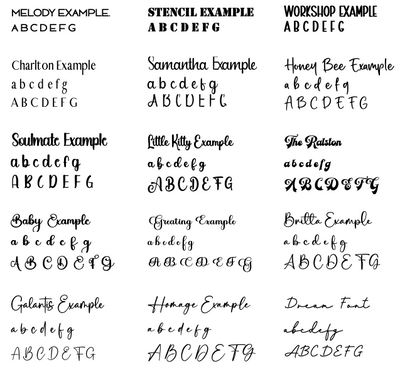 MELODY EXAMPLE.
ABCDEFG
STENCIL EXAMPLE
ABCDEFG
WORKSHOP EXAMPLE
ABCDEFG
Charlton Example
abcdefg
ABCDEFG
Samantha Example
abcdefg
ABCDEFG
Honey Bee Example
abcdefg
ABCDEFG
Soulmate Example
abcdefg
ABCDEFG
Little Kitty Example
abcdefg
ABCDEFG
The Ralston
abcdefg
ABCDEFG
Baby Example
abcdefg
ABCDEFG
Greating Example
abcdefg
ABCDEFG
Britta Example
abcdefg
ABCDEFG
Galantis Example
abcdefg
ABCDEFG
Homage Example
abcdefg
ABCDEFG
Dream Font
abcdefg
ABCDEFG